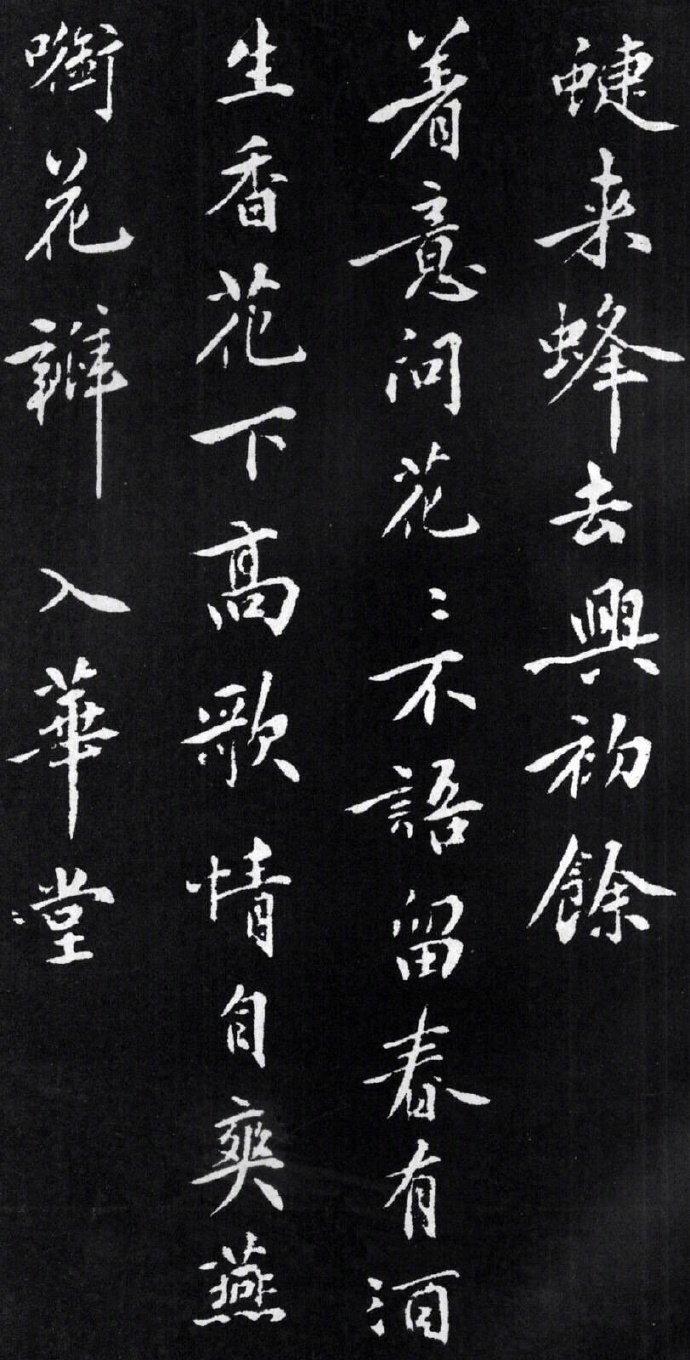 蜨来蜂去興初餘
着意问花〻不語留春有酒
生香花下高歌情自爽燕
啣花辦入華堂